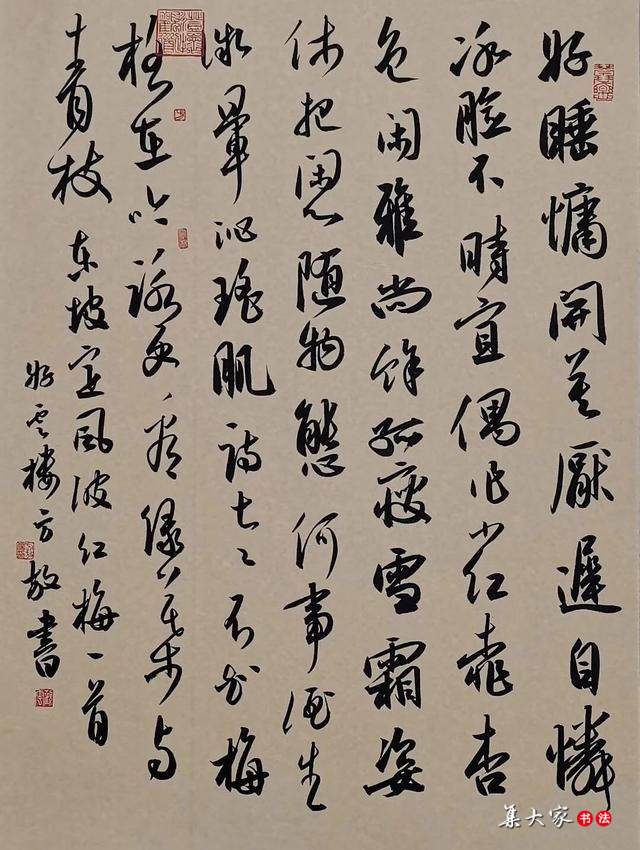 好睡慵開莫厭遲自憐
冰臉不時宜偶作小红桃杏
色闲雅尚餘孤瘦雪霜姿
休把閑心随物態何事酒生
微暈沁瑶肌诗老不知梅
格在吟詠更看绿葉与
青枝 東坡定風波红梅一首
好雲樓方放書
集大家书法